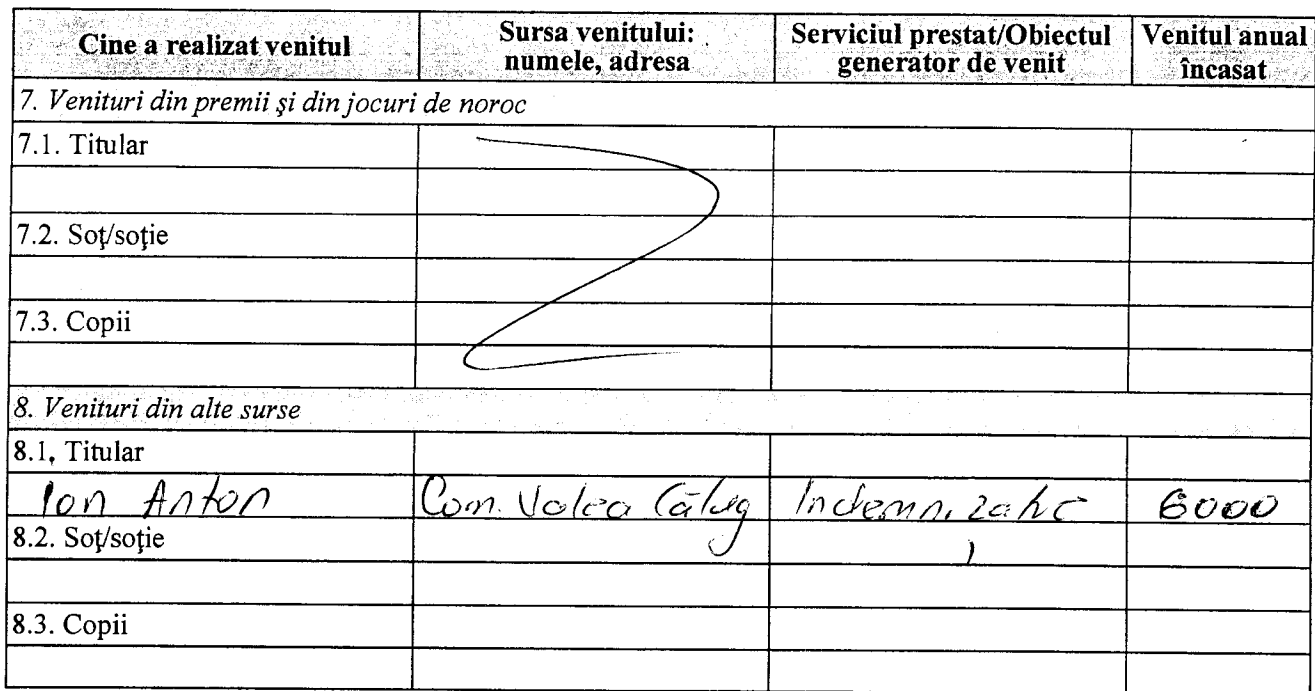 Cine a realizat venitul | Sursa venitului: numele, adresa | Serviciul prestat/Obiectul generator de venit | Venitul anual încasat
7. Venituri din premii şi din jocuri de noroc
7.1. Titular
7.2. Soţ/soţie
7.3. Copii
8. Venituri din alte surse
8.1, Titular
Ion Anton | Com. Valea Călug | Indemnizaţie | 6000
8.2. Soţ/soţie
8.3. Copii